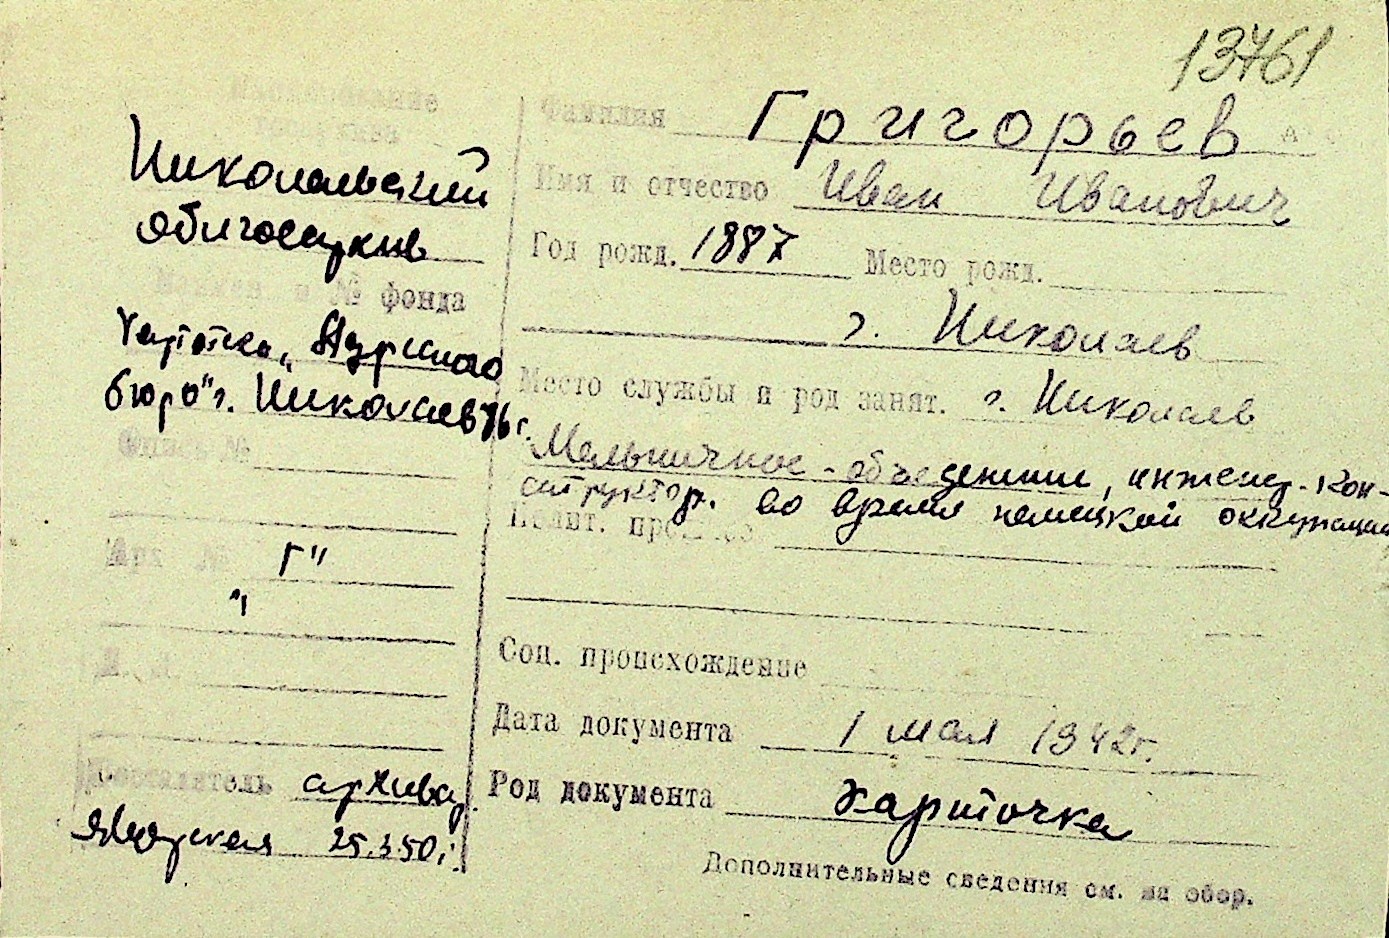 13761
Наименование
госархива
Николаевский
облгосархив
и № фонда
Картотека „Адресного
бюро" г. Николаев
Опись №
Арх №
„Г"
Составитель архивар
25.3.50г.
Фамилия Григорьев
Имя и отчество Иван Иванович
Год рожд. 1887 Место рожд.
г. Николаев
Место службы и род занят. г. Николаев
Мельничное - объеденение, инженер-кон-
структор. во время немецкой оккупации
Полит. прошлое
Соц. происхождение
Дата документа 1 мая 1942г.
Род документа карточка
Дополнительные сведения см. на обор.